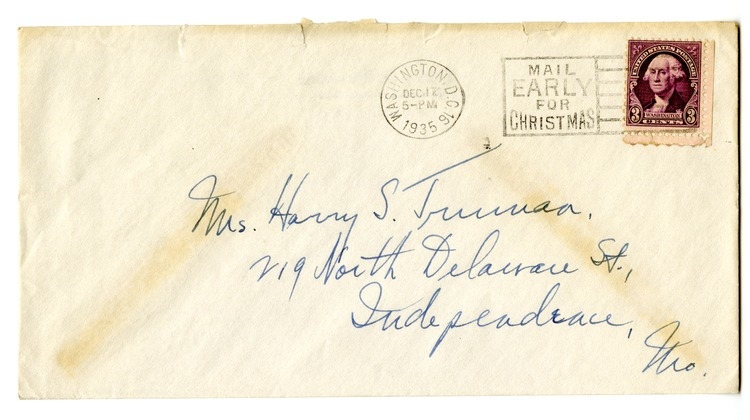 WASHINGTON, D.C.
DEC 12
5-PM
1935
MAIL
EARLY
FOR
CHRISTMAS
UNITED STATES POSTAGE
3 WASHINGTON 3
CENTS
Mrs. Harry S. Truman.
219 North Delaware St.,
Independence,
Mo.